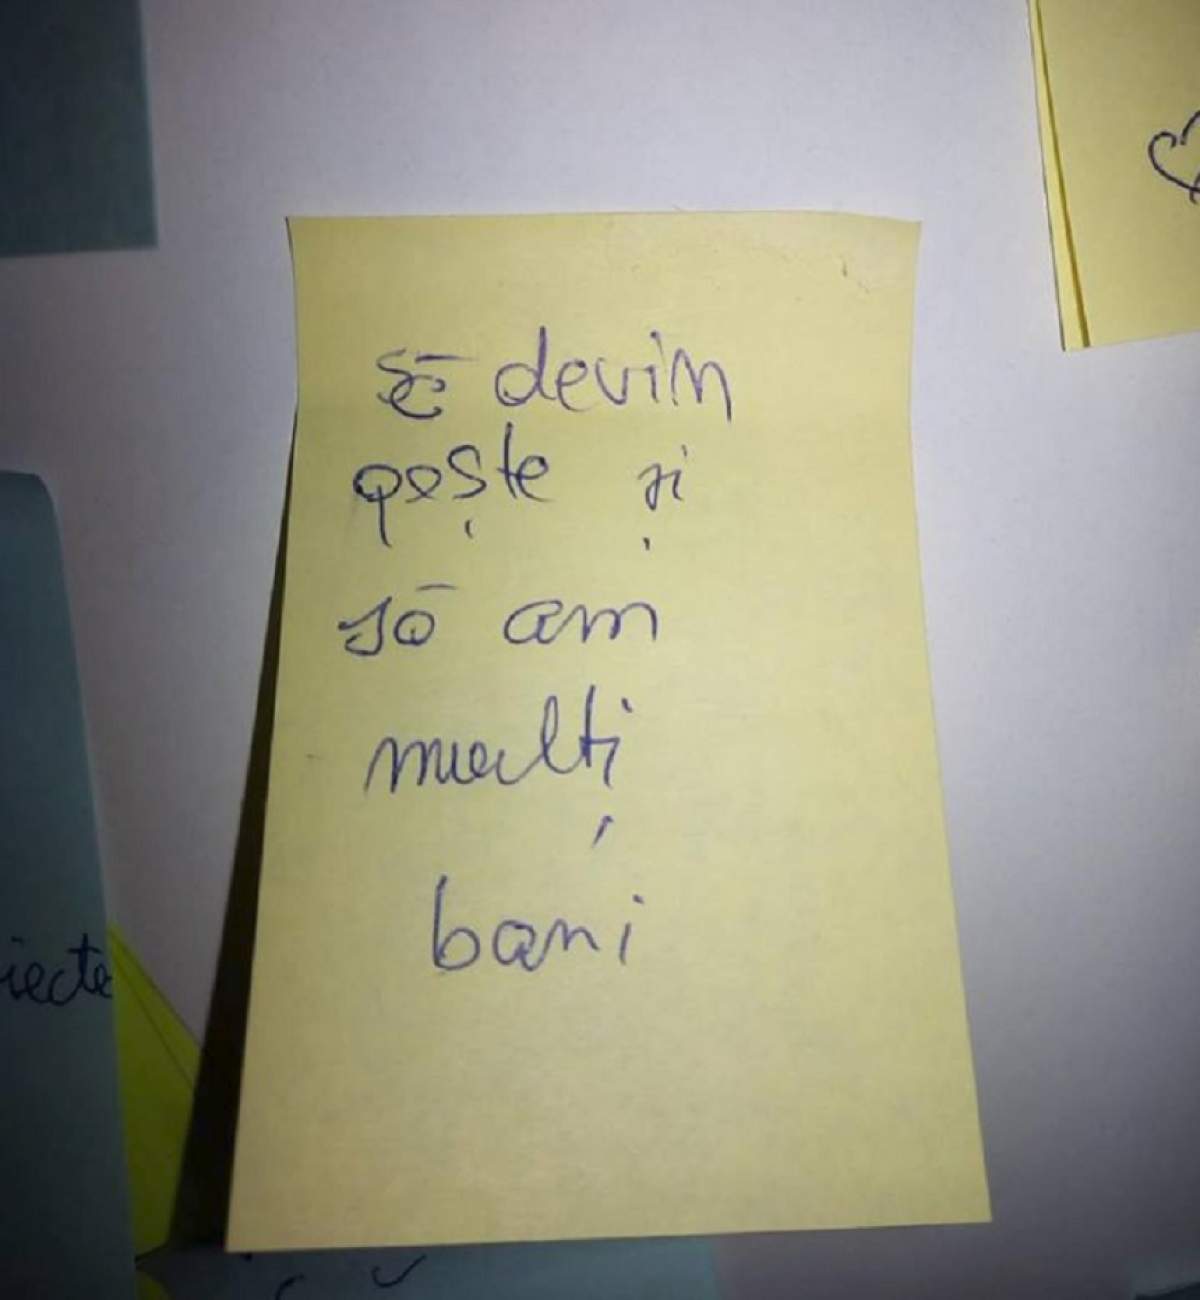 să devin
pește și
să am
mulți
bani
iecte